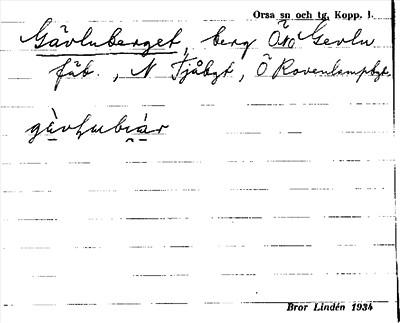 Orsa sn och tg, Kopp. l.
Gävluberget, berg ÖNÖ Gevlu
fäb., N Tjåbgt, Ö Rovenlampbgt.
gävlubiär
Bror Lindén 1934